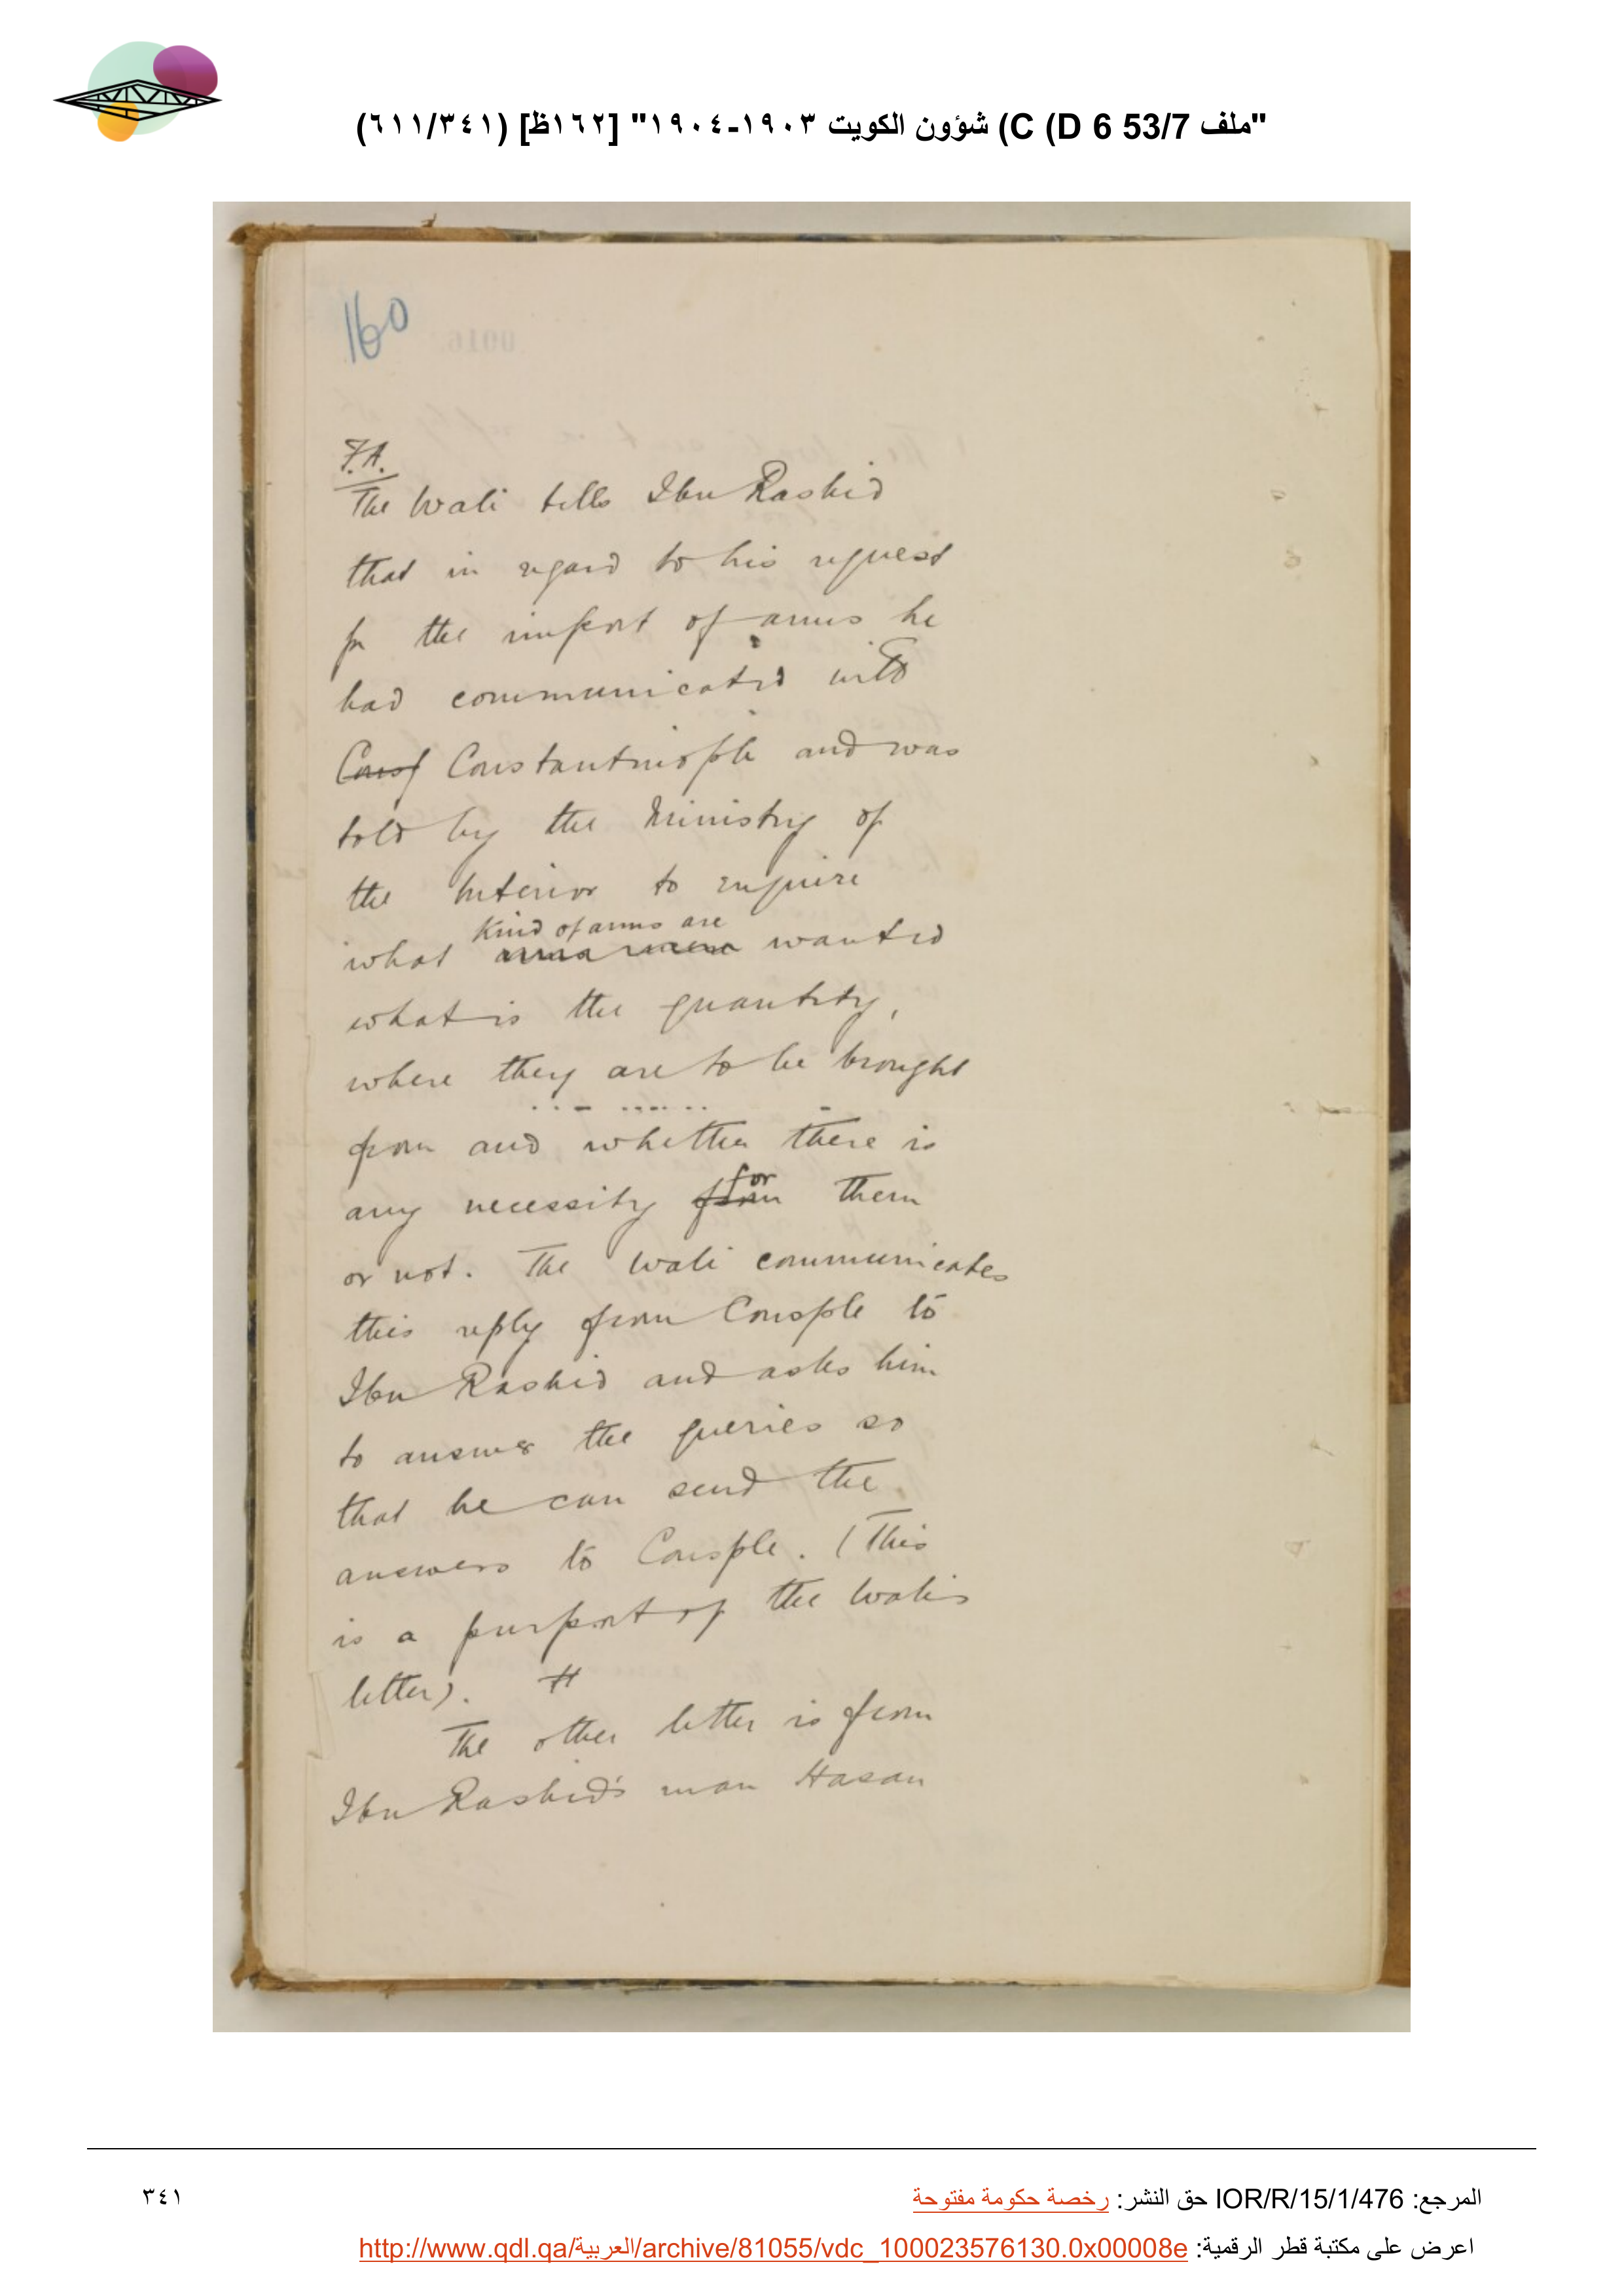 "ملف 53/7 C (D 6) شؤون الكويت ١٩٠٣-١٩٠٤" [١٦٢ظ] (٦١١/٣٤١)
160
F.A.
The Wali tells Ibn Rashid
that in regard to his request
for the import of arms he
had communicated with
Const Constantinople and was
told by the Ministry of
the Interior to enquire
kind of arms are
what wanted
what is the quantity,
where they are to be brought
from and whether there is
for
any necessity from them
or not. The Wali communicates
this reply from Consple to
Ibn Rashid and asks him
to answer the queries so
that he can send the
answers to Consple. (This
is a purport of the Wali's
letter).
The other letter is from
Ibn Rashid's man Hasan
المرجع: IOR/R/15/1/476 حق النشر: رخصة حكومة مفتوحة
٣٤١
اعرض على مكتبة قطر الرقمية: http://www.qdl.qa/العربية/archive/81055/vdc_100023576130.0x00008e